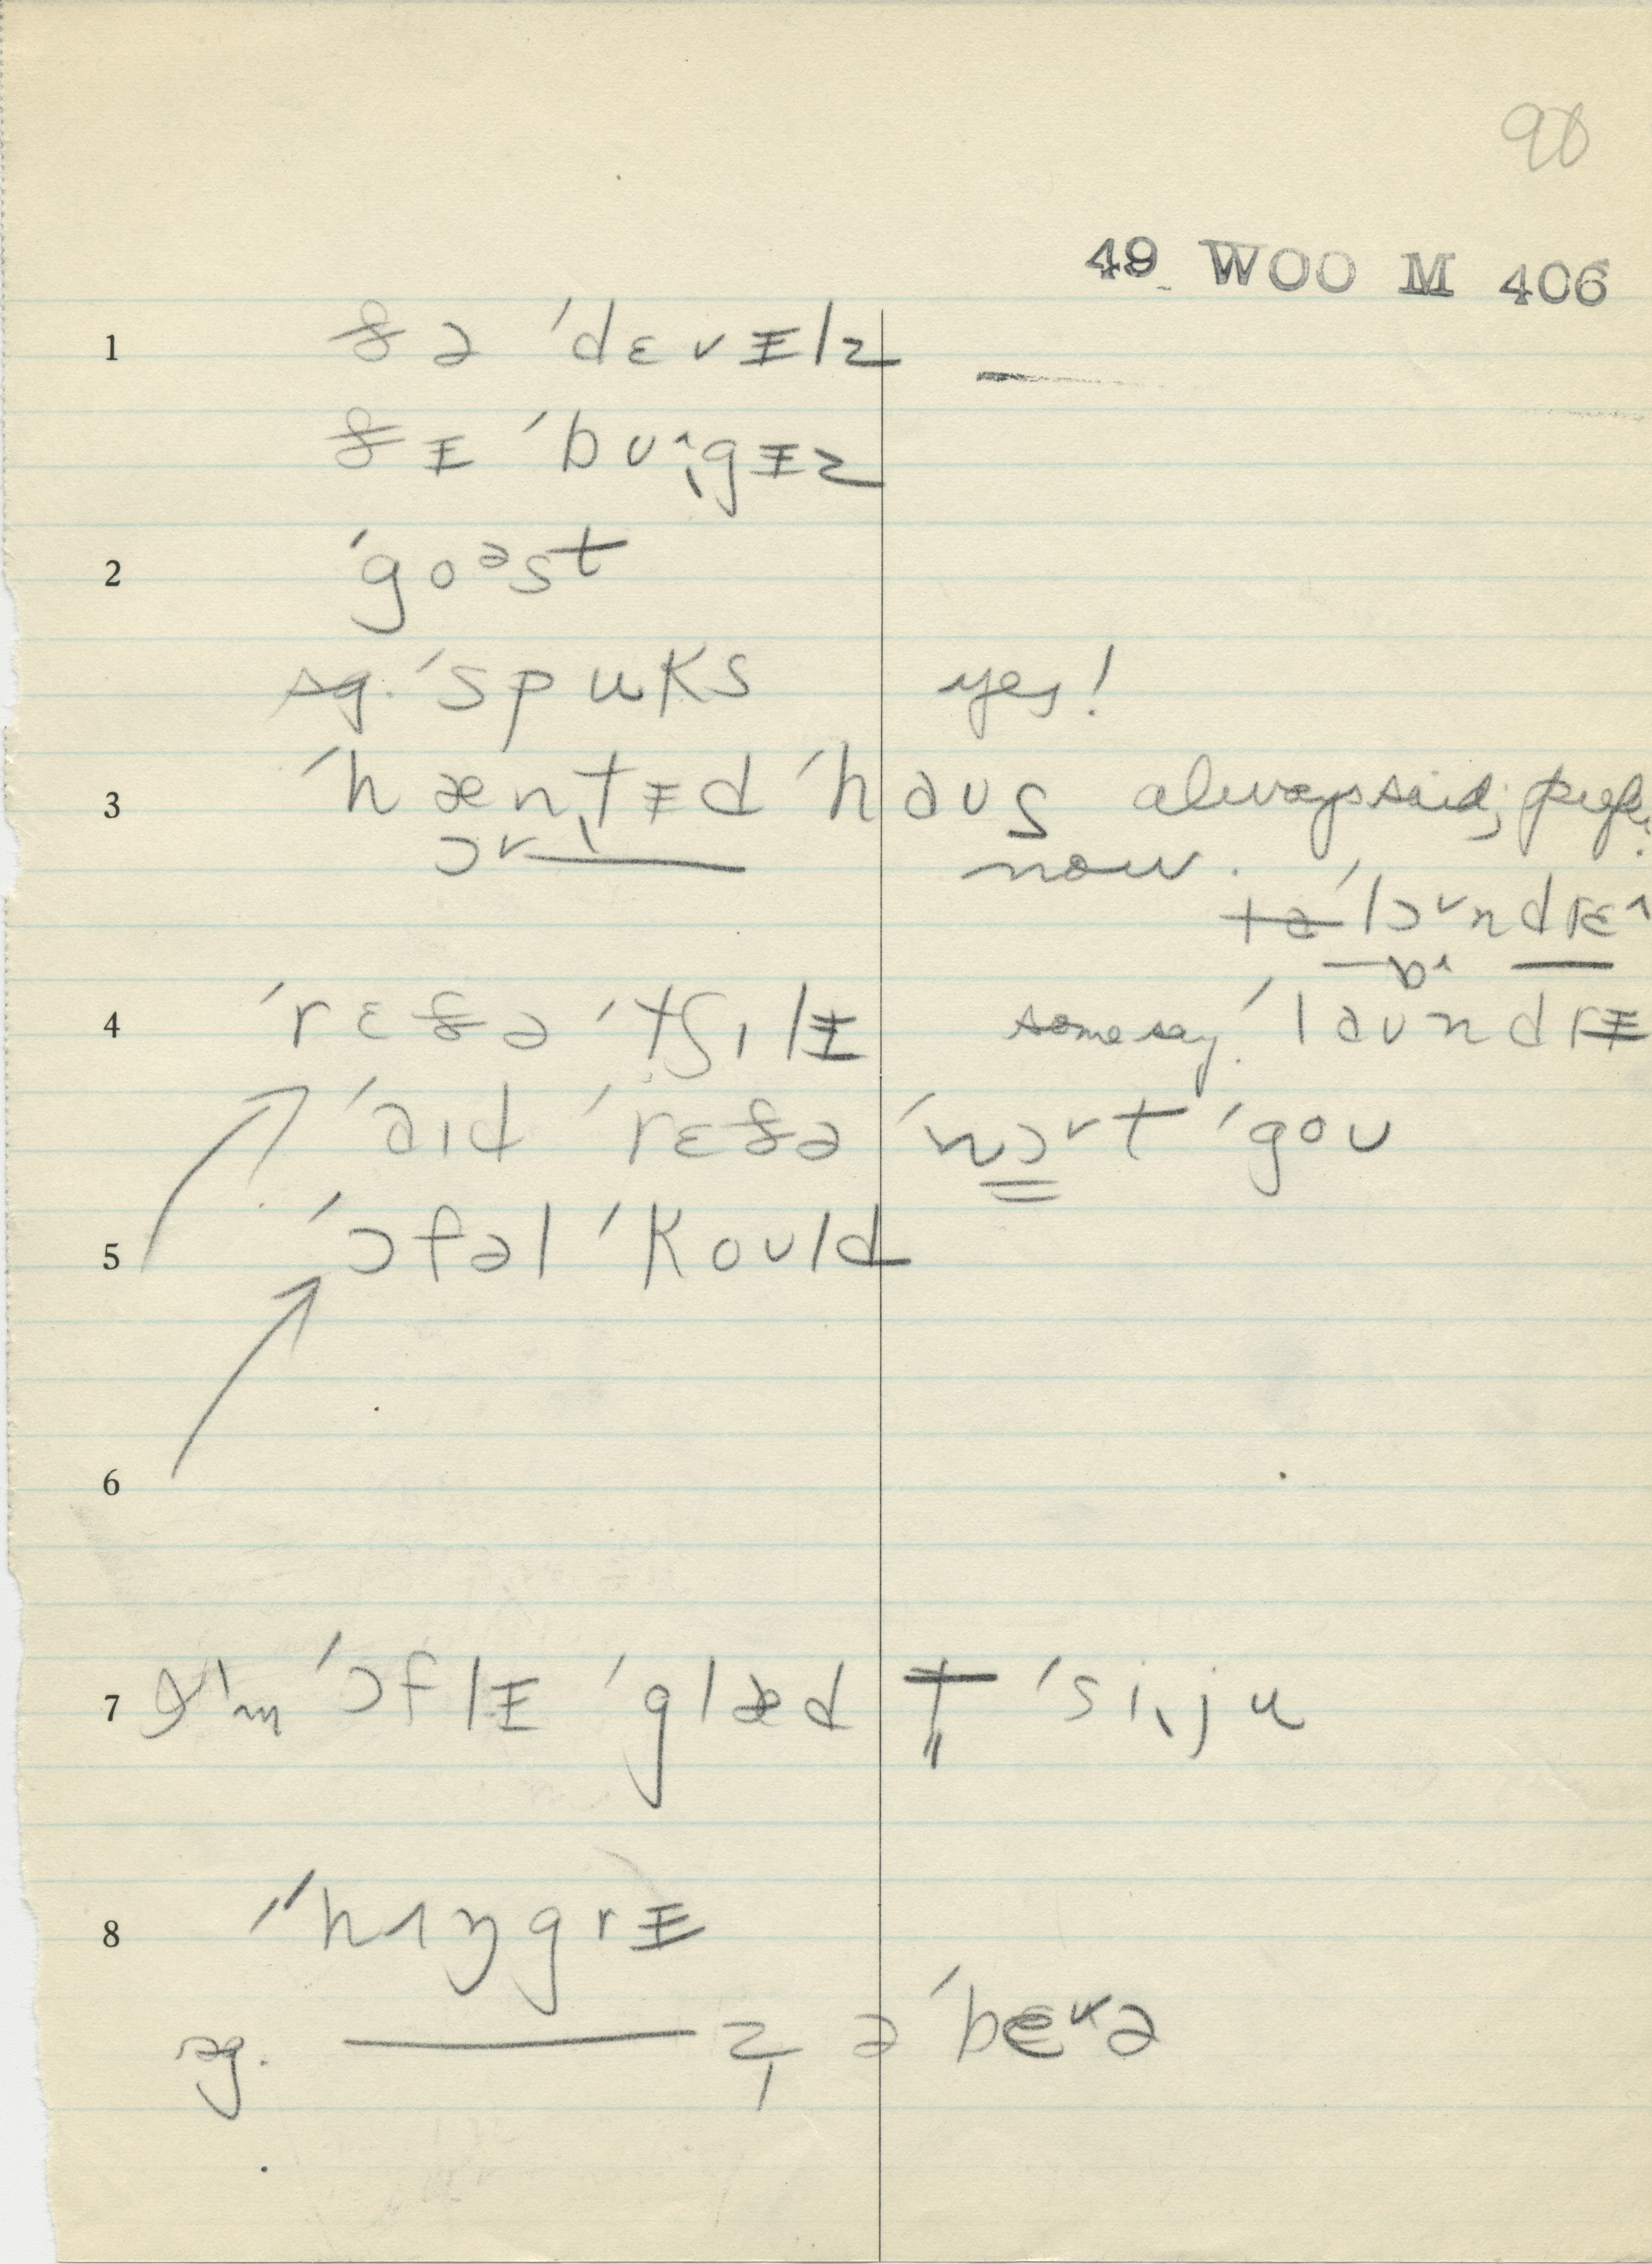 90
49 WOO M 406
1 ð̵ə ˈdɛvɪ̵lz
ð̵ɪ̵ ˈbʊ˄gɪ̵z
2 ˈgoᵊst
sg. ˈspuks yes!
3 ˈhæntɪ̵d ˈhaʊs always said; people
ɔ˅ now.
ˈlɔ˅ndrɛ˄
ɒ˄
4 ˈrɛð̵ə ˈtʃɪlɪ̵ some say: ˈlaʊndrɪ̵
ˈaɪd ˈrɛð̵ə ˈnɔ˅t ˈgoʊ
5 ˈɔfəl ˈkoʊld
6
7 I'm ˈɔflɪ̵ ˈglæd t̬ ˈsiˎju
8 ˈˈhʌŋgrɪ̵
sg. — z̩ ə ˈbɛ˅ə